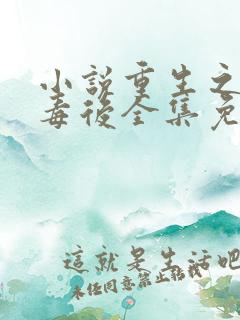 小说重生之
毒后全集免
这就是生活吧
未经同意禁止转载